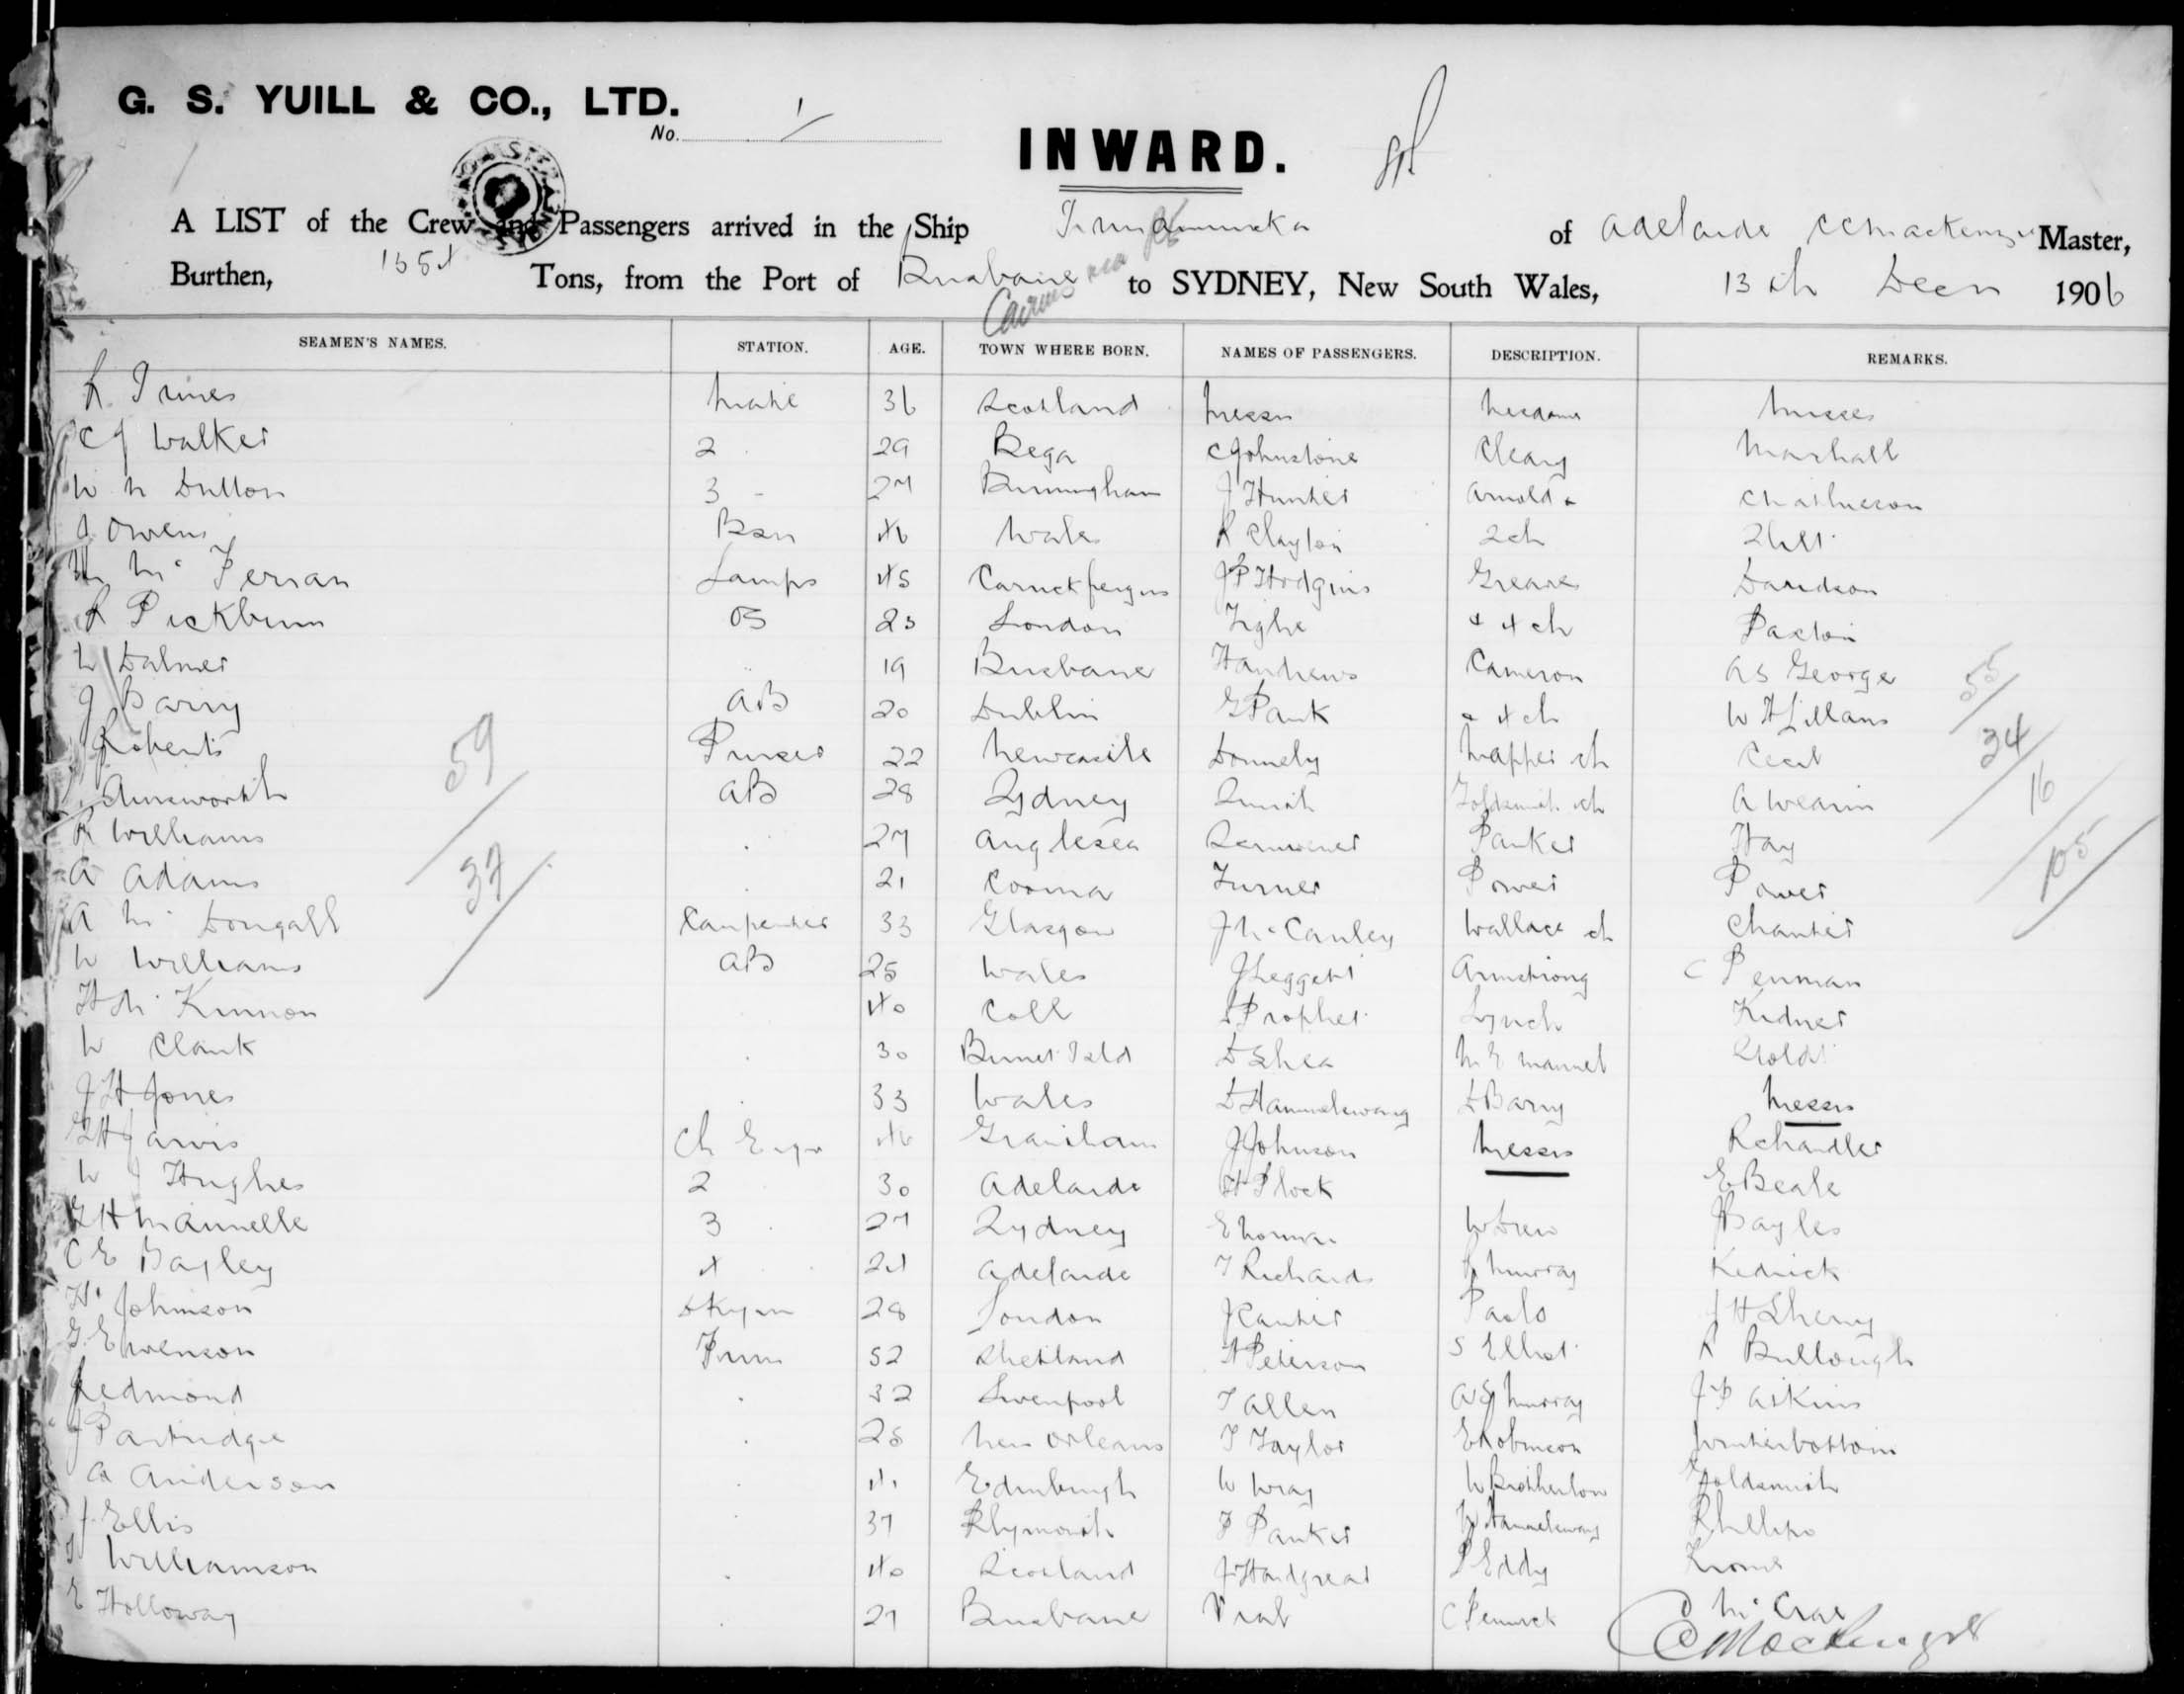 G. S. YUILL & CO., LTD.
No. 1
INWARD.
A LIST of the Crew and Passengers arrived in the Ship of Adelaide C C Mackenzie Master,
Burthen, Tons, from the Port of Brisbane Cairns via to SYDNEY, New South Wales, 13th Decr 1906
SEAMEN'S NAMES. STATION. AGE. TOWN WHERE BORN. NAMES OF PASSENGERS. DESCRIPTION. REMARKS.
Mate 36 Scotland Messrs Mesdames Misses
C J Walker 2 29 Bega C Johnstone Cleary Marshall
W N Dutton 3 - 27 Birmingham J Hunter Arnold &
J Owens Bsn 46 Wales R Clayton 2 ch
Mc Ferran Lamps 45 Carrickfergus J P Hodgins Greaves Davidson
R Pickburn OS 23 London Tighe & 4 ch Paxton
19 Brisbane Andrews Cameron A S George
J Barry AB 20 Dublin G Pank & 4 ch W H Lillans
Roberts Purser 22 Newcastle Donnely Mapper ch Cecil
Ainsworth AB 28 Sydney Smith Goldsmith ch A Wearin
R Williams 27 Anglesea Parker Hay
A Adams 21 Cooma Turner Power Power
A Mc Dougall Carpenter 33 Glasgow J McCauley Wallace ch Chanter
W Williams AB 25 Wales J Leggett Armstrong C Penman
H Mc Kinnon 40 Coll D Prophet Lynch Kidner
W Clark 30 D Shea
J H Jones 33 Wales D Hammelswang D Barry Messrs
G H Jarvis Ch Engr 46 Grantham J Johnson Messrs R Chandler
W J Hughes 2 30 Adelaide H Plock E Beale
G H Mannelle 3 27 Sydney E Thomas W Drew J Bayles
C E Bayley 4 24 Adelaide T Richards P Murray Kedrick
H Johnson Dkymn 28 London J Carter Paolo J H Sherry
G. Ewenson Firm 52 Shetland H Peterson S Elliot R Bullough
J Redmond 32 Liverpool T Allen A G Murray J P Askins
J Partridge 25 New Orleans T Taylor E Robinson J Winterbottom
A Anderson 41 Edinburgh W Wray W Brotherton Goldsmith
J Ellis 37 Plymouth F Parker W Hammelswang Phillips
Williamson 40 Scotland J Hardgreat P Eddy
E Holloway 27 Brisbane C Pennick D Mc Crae
C C Mackenzie
59
37
55
34
16
105